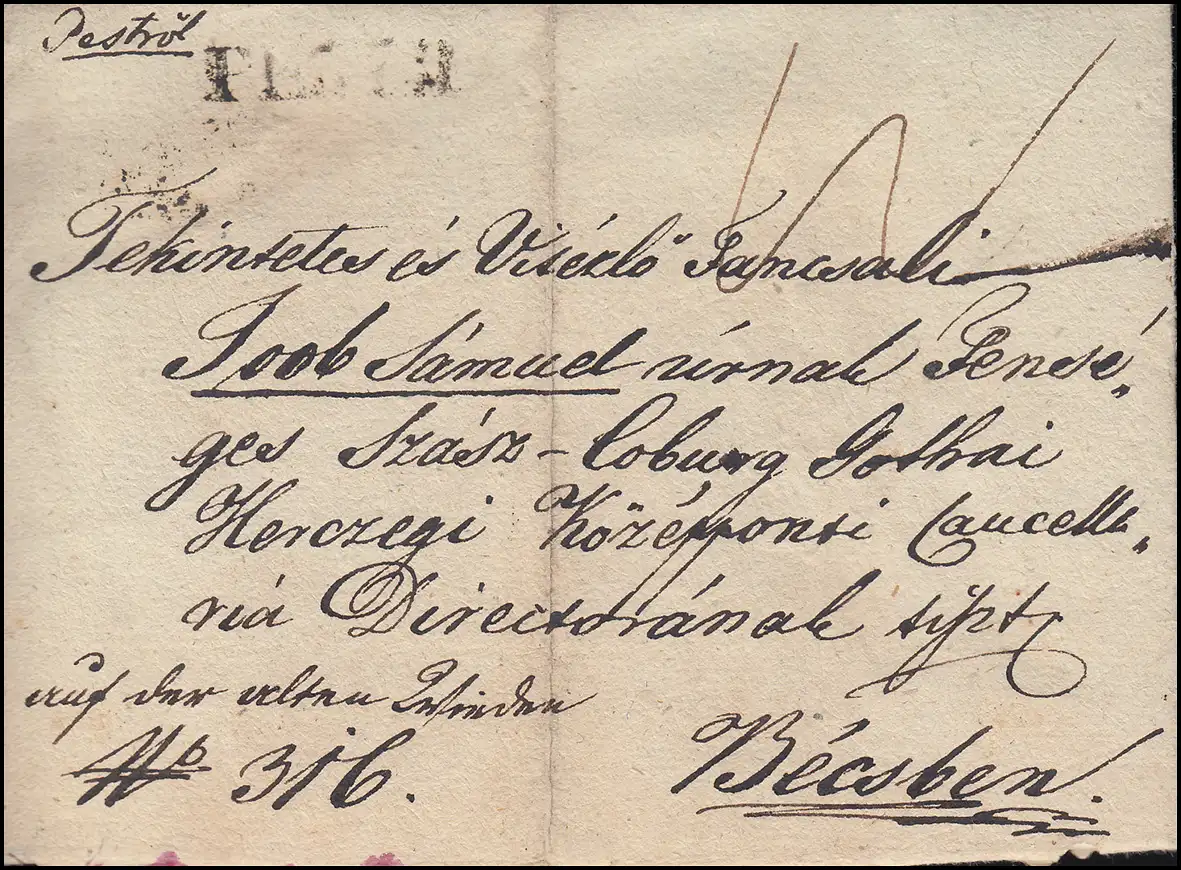 Pestről
PESTH
Tekintetes és Vitézlő Fancsali
Joob Sámuel úrnak Fensé„
ges Szász-Coburg Gothai
Herczegi Középponti Cancella„
ria Directorának tiszt
auf der alten Wieden
No 316.
Bécsben.